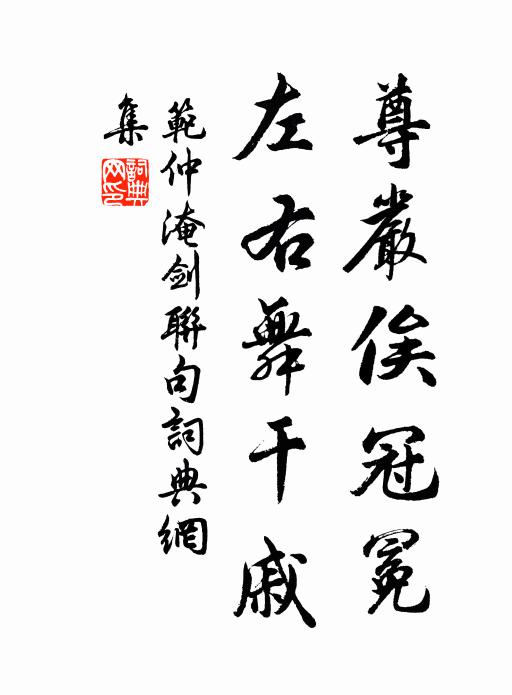 尊嚴俟冠冕
左右舞干戚
範仲淹劍聯句詞典網
集
詞典網印